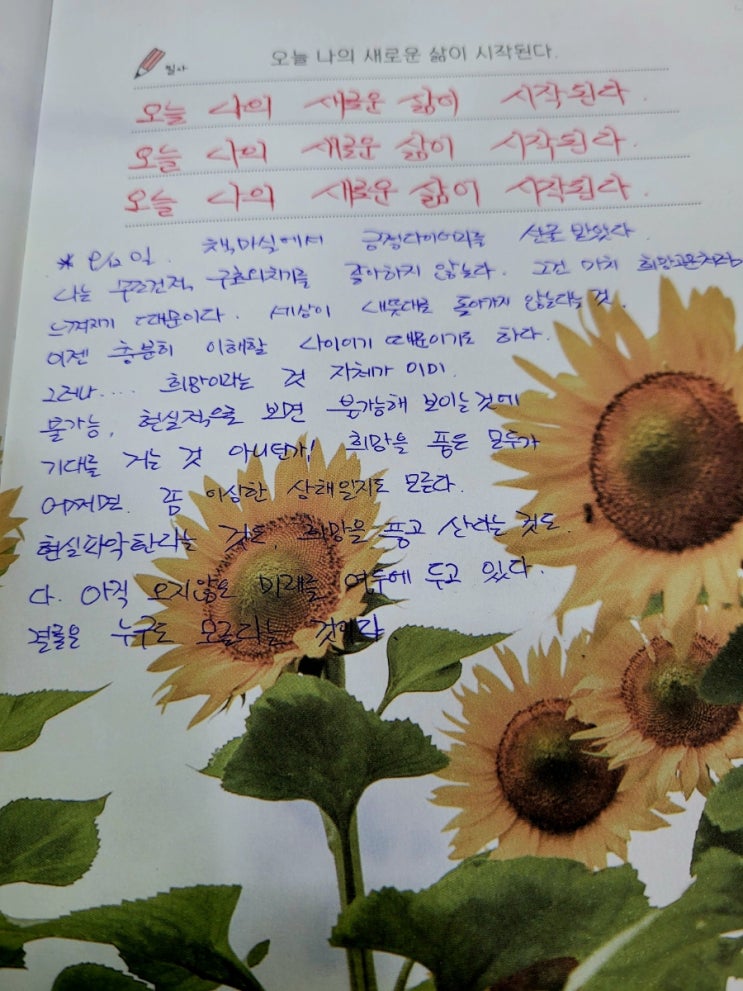 필사
오늘 나의 새로운 삶이 시작된다.
오늘 나의 새로운 삶이 시작된다.
오늘 나의 새로운 삶이 시작된다.
오늘 나의 새로운 삶이 시작된다.
* 책마실에서 긍정다이어리를 선물 받았다
나는 무조건적 좋아하지 않는다. 그건 마치
느껴지기 때문이다. 세상이 내뜻대로 돌아가지 않는다는 것.
이젠 충분히 이해할 나이이기 때문이기도 하다.
그러나.... 희망이라는 것 자체가 이미.
불가능, 현실적으로 보면 불가능해 보이는 것에
기대를 거는 것 아니던가! 희망을 품은 모두가
어쩌면. 좀 이상한 상태일지도 모른다.
현실파악한라는 것도, 희망을 품고 산라는 것도.
다. 아직 오지않은 미래를 염두에 두고 있다.
결론은 누구도 모른다는 것이다